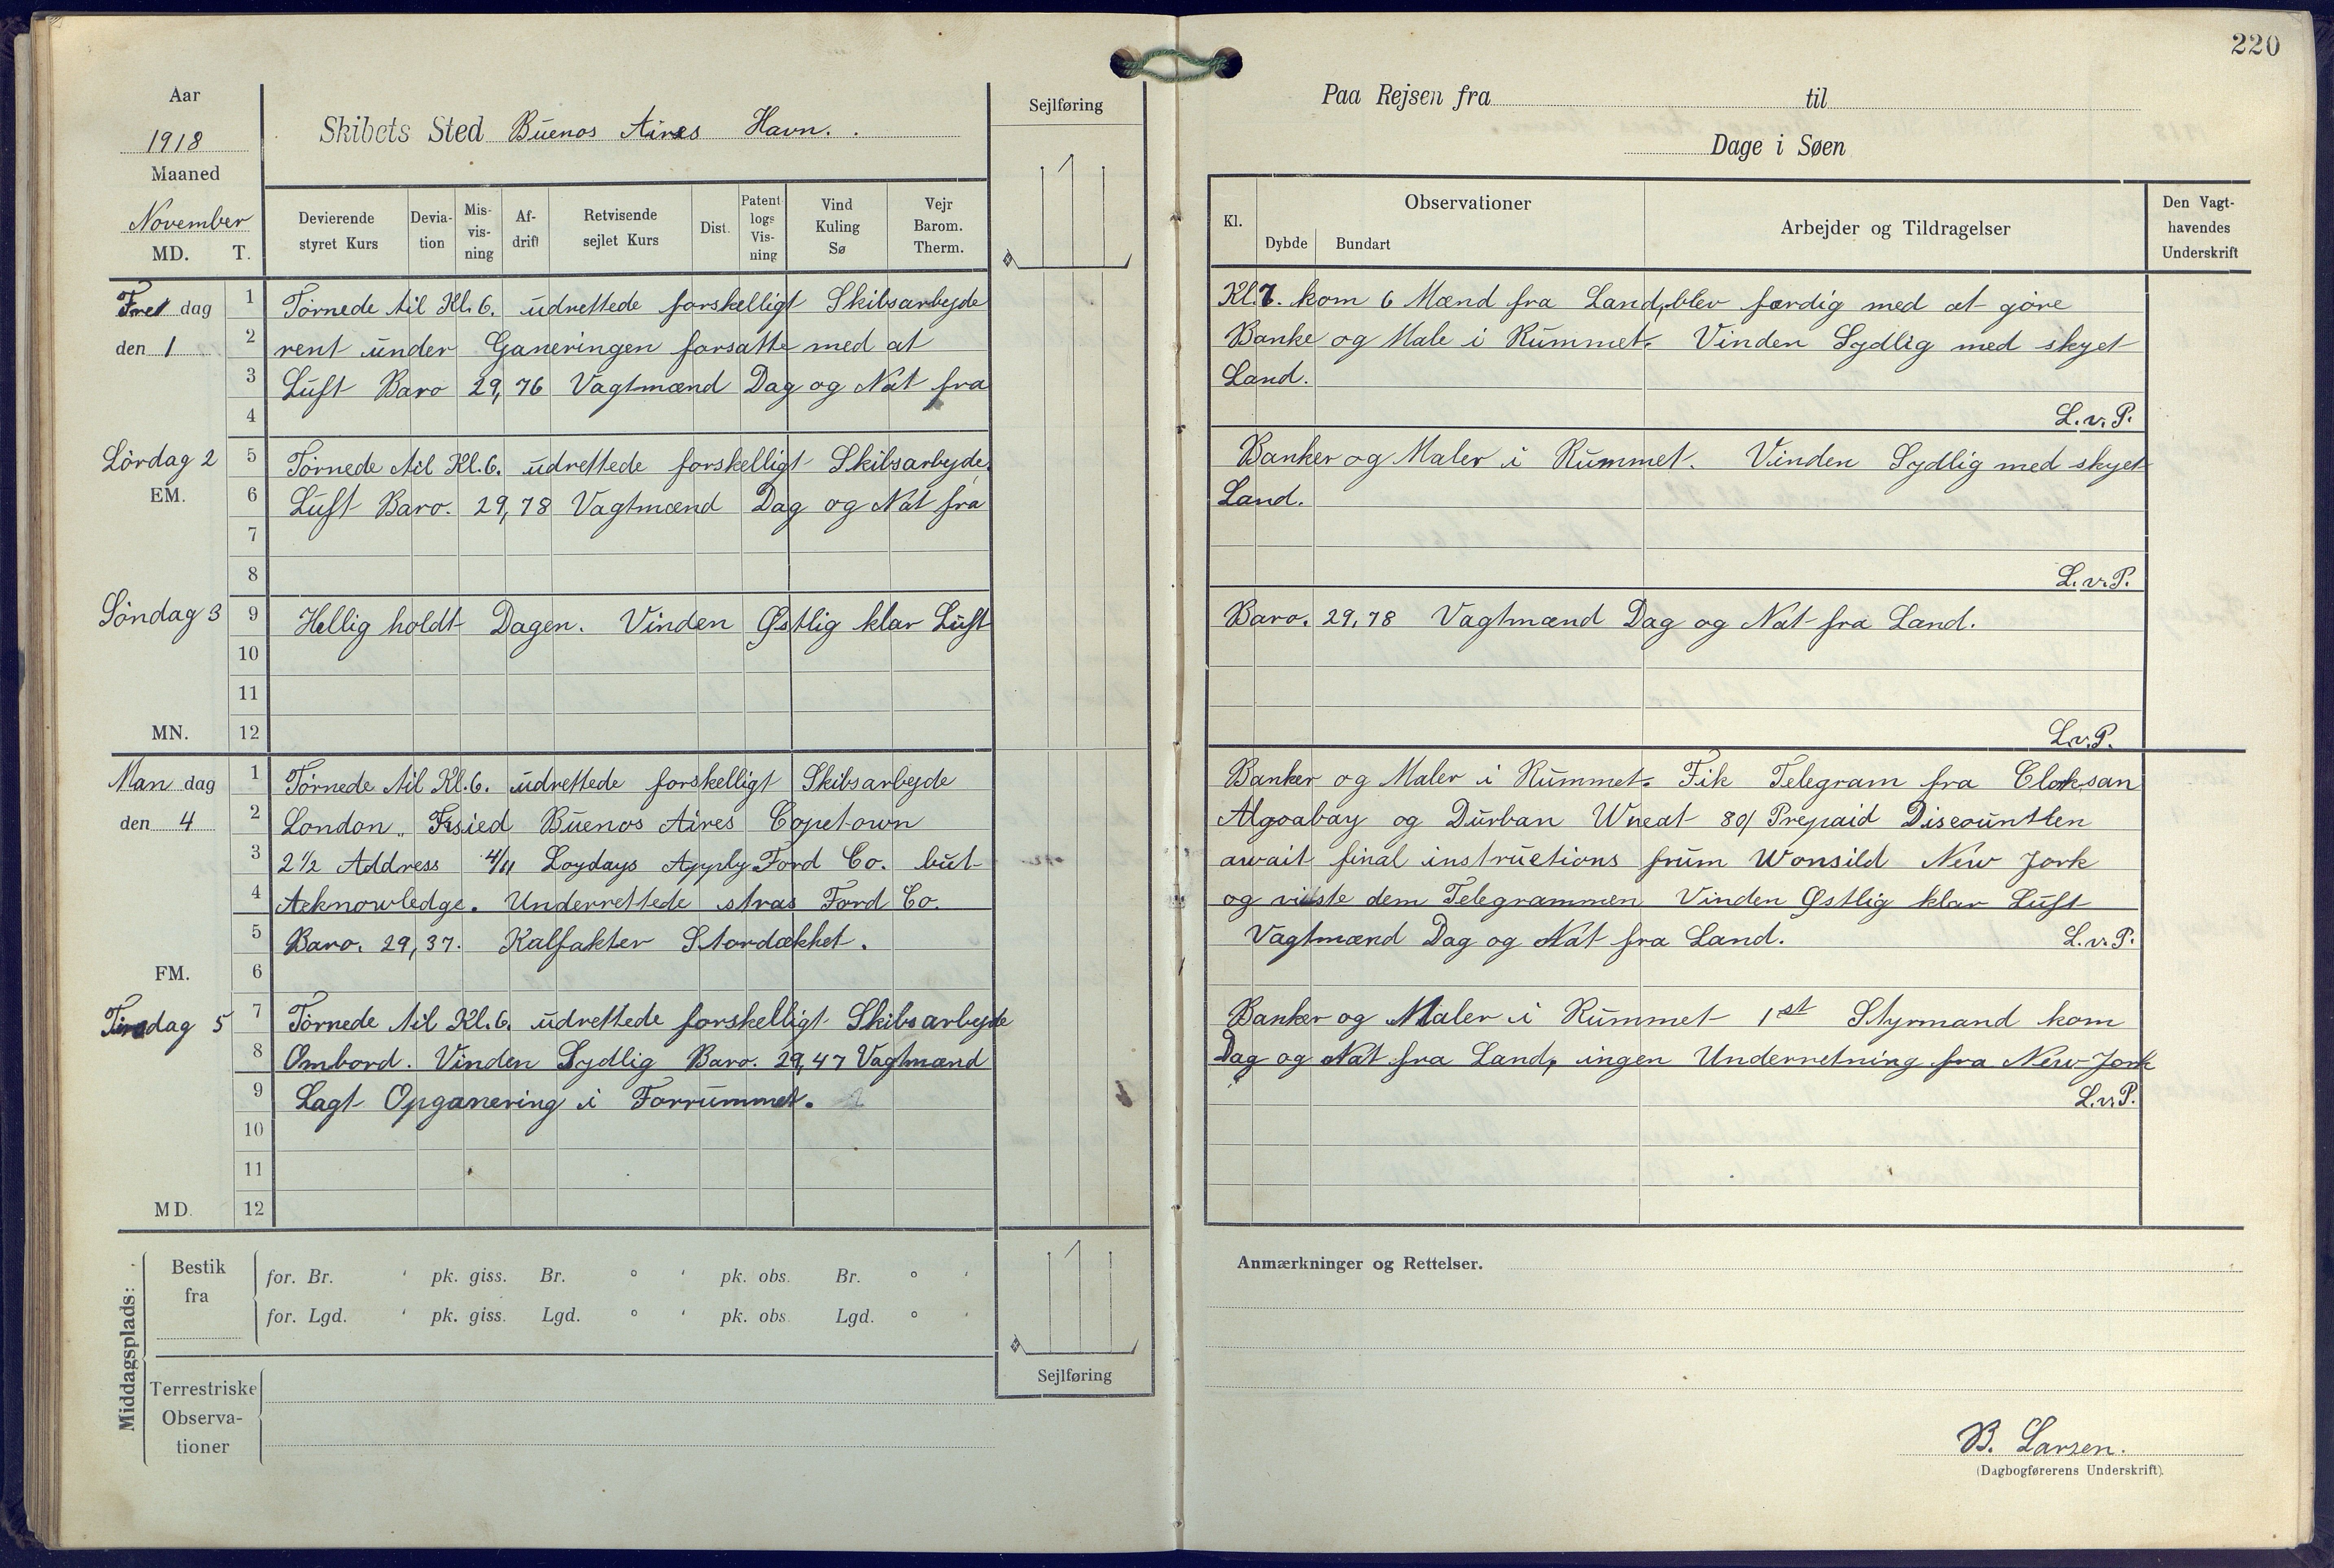 220
Aar
1918
Maaned
November
MD. T.
Skibets Sted Buenos Aires Havn.
Sejlføring
Devierende styret Kurs
Devia-tion
Mis-vis-ning
Af-drift
Retvisende sejlet Kurs
Dist.
Patent logs Vis-ning
Vind Kuling Sø
Vejr Barom. Therm.
Paa Rejsen fra til
Dage i Søen
Kl.
Observationer
Dybde Bundart
Arbejder og Tildragelser
Den Vagt-havendes Underskrift
Fredag
den 1
1 Törnede til Kl. 6. udrettede forskelligt Skibsarbejde Kl. 7. kom 6 Mænd fra Land, blev færdig med at göre
2 rent under Ganeringen forsatte med at Banke og Male i Rummet. Vinden Sydlig med skyet
3 Luft Baro 29,76 Vagtmænd Dag og Nat fra Land.
4 L.v.P.
Lördag 2
EM.
5 Törnede til Kl. 6. udrettede forskelligt Skibsarbejde, Banker og Maler i Rummet. Vinden Sydlig med skyet
6 Luft Baro. 29,78 Vagtmænd Dag og Nat fra Land.
7
8 L.v.P.
Söndag 3
9 Hellig holdt Dagen. Vinden Østlig klar Luft Baro. 29,78 Vagtmænd Dag og Nat fra Land.
10
11
MN. 12 L.v.P.
Man dag
den 4
1 Törnede til Kl. 6. udrettede forskelligt Skibsarbejde Banker og Maler i Rummet. Fik Telegram fra Clarksan
2 London „ Buenos Aires Copetown Algoabay og Durban Wheat 80/ Prepaid
3 2½ Address 4/11 Loydays Apply Ford Co. but await final instructions frum Wonsild New Jork
4 Acknowledge. Underrettede stras Ford Co. og viste dem Telegrammen Vinden Østlig klar Luft
5 Baro. 29,37. Kalfakter Stordækket. Vagtmænd Dag og Nat fra Land. L.v.P.
FM. 6
Tirsdag 5
7 Törnede til Kl. 6. udrettede forskelligt Skibsarbejde Banker og Maler i Rummet 1st Styrmand kom
8 Ombord. Vinden Sydlig Baro. 29,47 Vagtmænd Dag og Nat fra Land, ingen Underretning fra New-Jork
9 Lagt Opganering i Forrummet. L.v.P.
10
11
MD. 12
Middagsplads:
Bestik fra
for. Br. ' pk. giss. Br. ° ' pk. obs. Br. ° '
for. Lgd. ' pk. giss. Lgd. ° ' pk. obs. Lgd. ° '
Sejlføring
Terrestriske Observa-tioner
Anmærkninger og Rettelser.
B. Larsen.
(Dagbogførerens Underskrift).